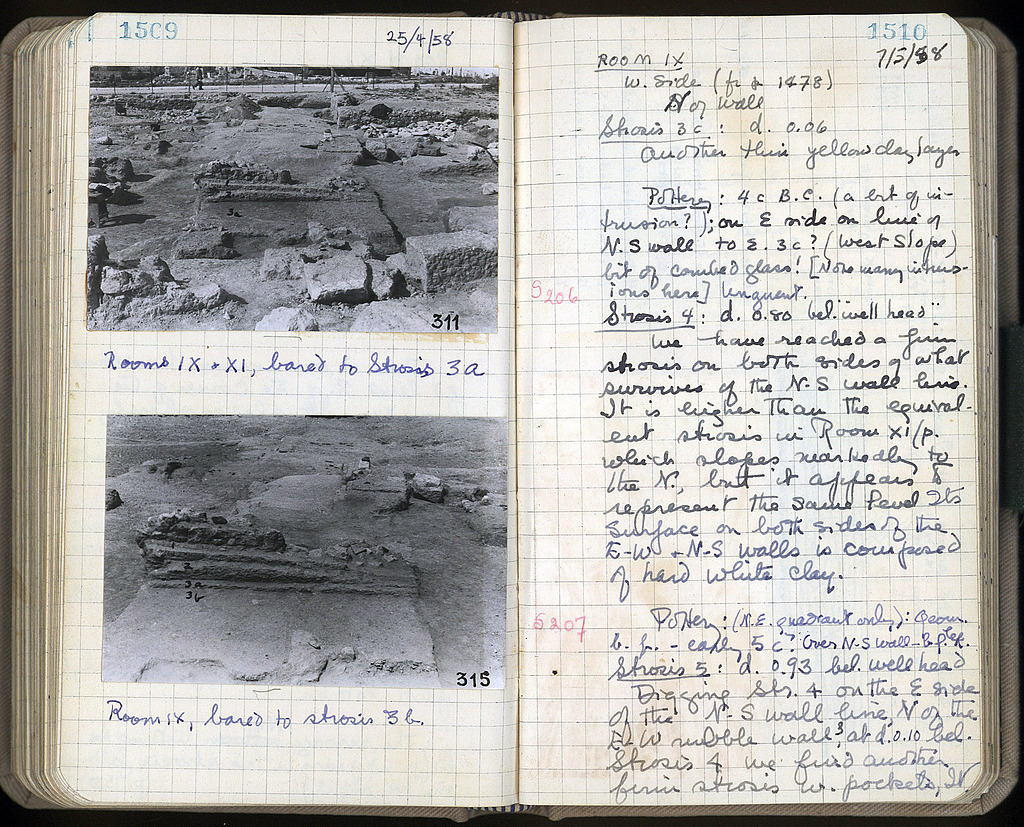 1509
25/4/58
3a
311
Rooms IX + XI, bared to Strosis 3a
2
3a
3b
315
Room IX, bared to strosis 3b.
1510
7/5/58
ROOM IX
W. Side (fr p 1478)
N of wall
Strosis 3c: d. 0.06
Another thin yellow clay layer
Pottery: 4 c B.C. (a bit of in-
trusion?); on E side on line of
N.S wall to E. 3 c? (West Slope)
bit of combed glass! [Note many intrus-
ions here] Unguent.
S206
Strosis 4: d. 0.80 bel. "well head"
We have reached a firm
strosis on both sides of what
survives of the N-S wall line.
It is higher than the equival-
ent strosis in Room XI/p.
which slopes markedly to
the N., but it appears to
represent the same level. Its
surface on both sides of the
E-W + N-S walls is composed
of hard white clay.
S207
Pottery: (N.E. quadrant only): Geom.
b. f. - early 5 c? Over N-S wall -
Strosis 5: d. 0.93 bel. well head
Digging Str. 4 on the E side
of the N-S wall line, N of the
E-W rubble wall, at d. 0.10 bel.
Strosis 4 we find another
firm strosis w. pockets, It